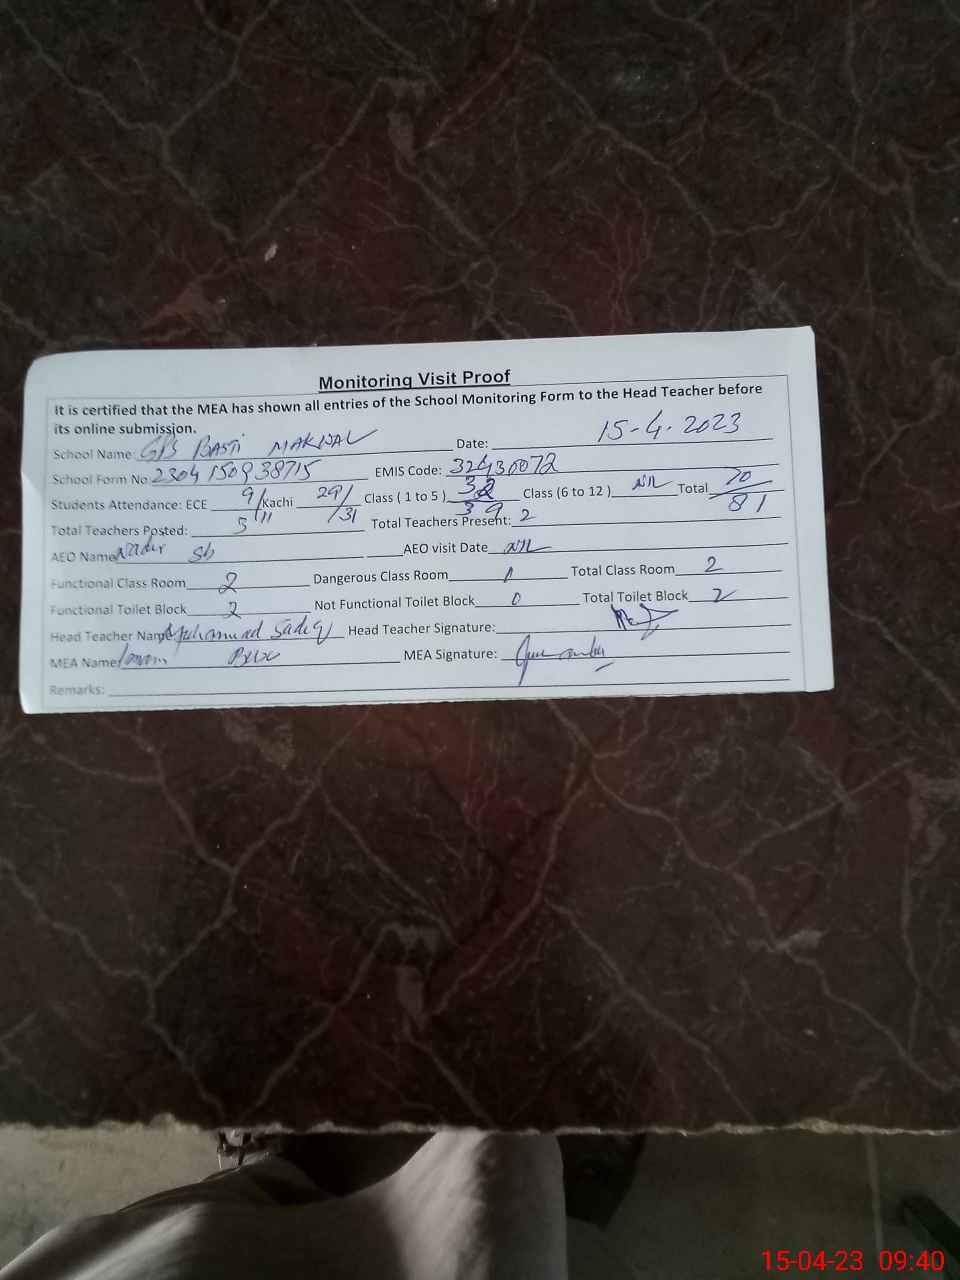 Monitoring Visit Proof
It is certified that the MEA has shown all entries of the School Monitoring Form to the Head Teacher before
its online submission.
School Name: GPS BASTI MAKWAL Date: 15-4-2023
School Form No: 2304150938715 EMIS Code: 32430072
Students Attendance: ECE 9/11 Kachi 29/31 Class ( 1 to 5 ) 32/39 Class (6 to 12 ) NIL Total 70/81
Total Teachers Posted: 5 Total Teachers Present: 2
AEO Name Nadir Sb AEO visit Date NIL
Functional Class Room 2 Dangerous Class Room 0 Total Class Room 2
Functional Toilet Block 2 Not Functional Toilet Block 0 Total Toilet Block 2
Head Teacher Name Muhammad Sadiq Head Teacher Signature:
MEA Name MEA Signature:
Remarks:
15-04-23 09:40